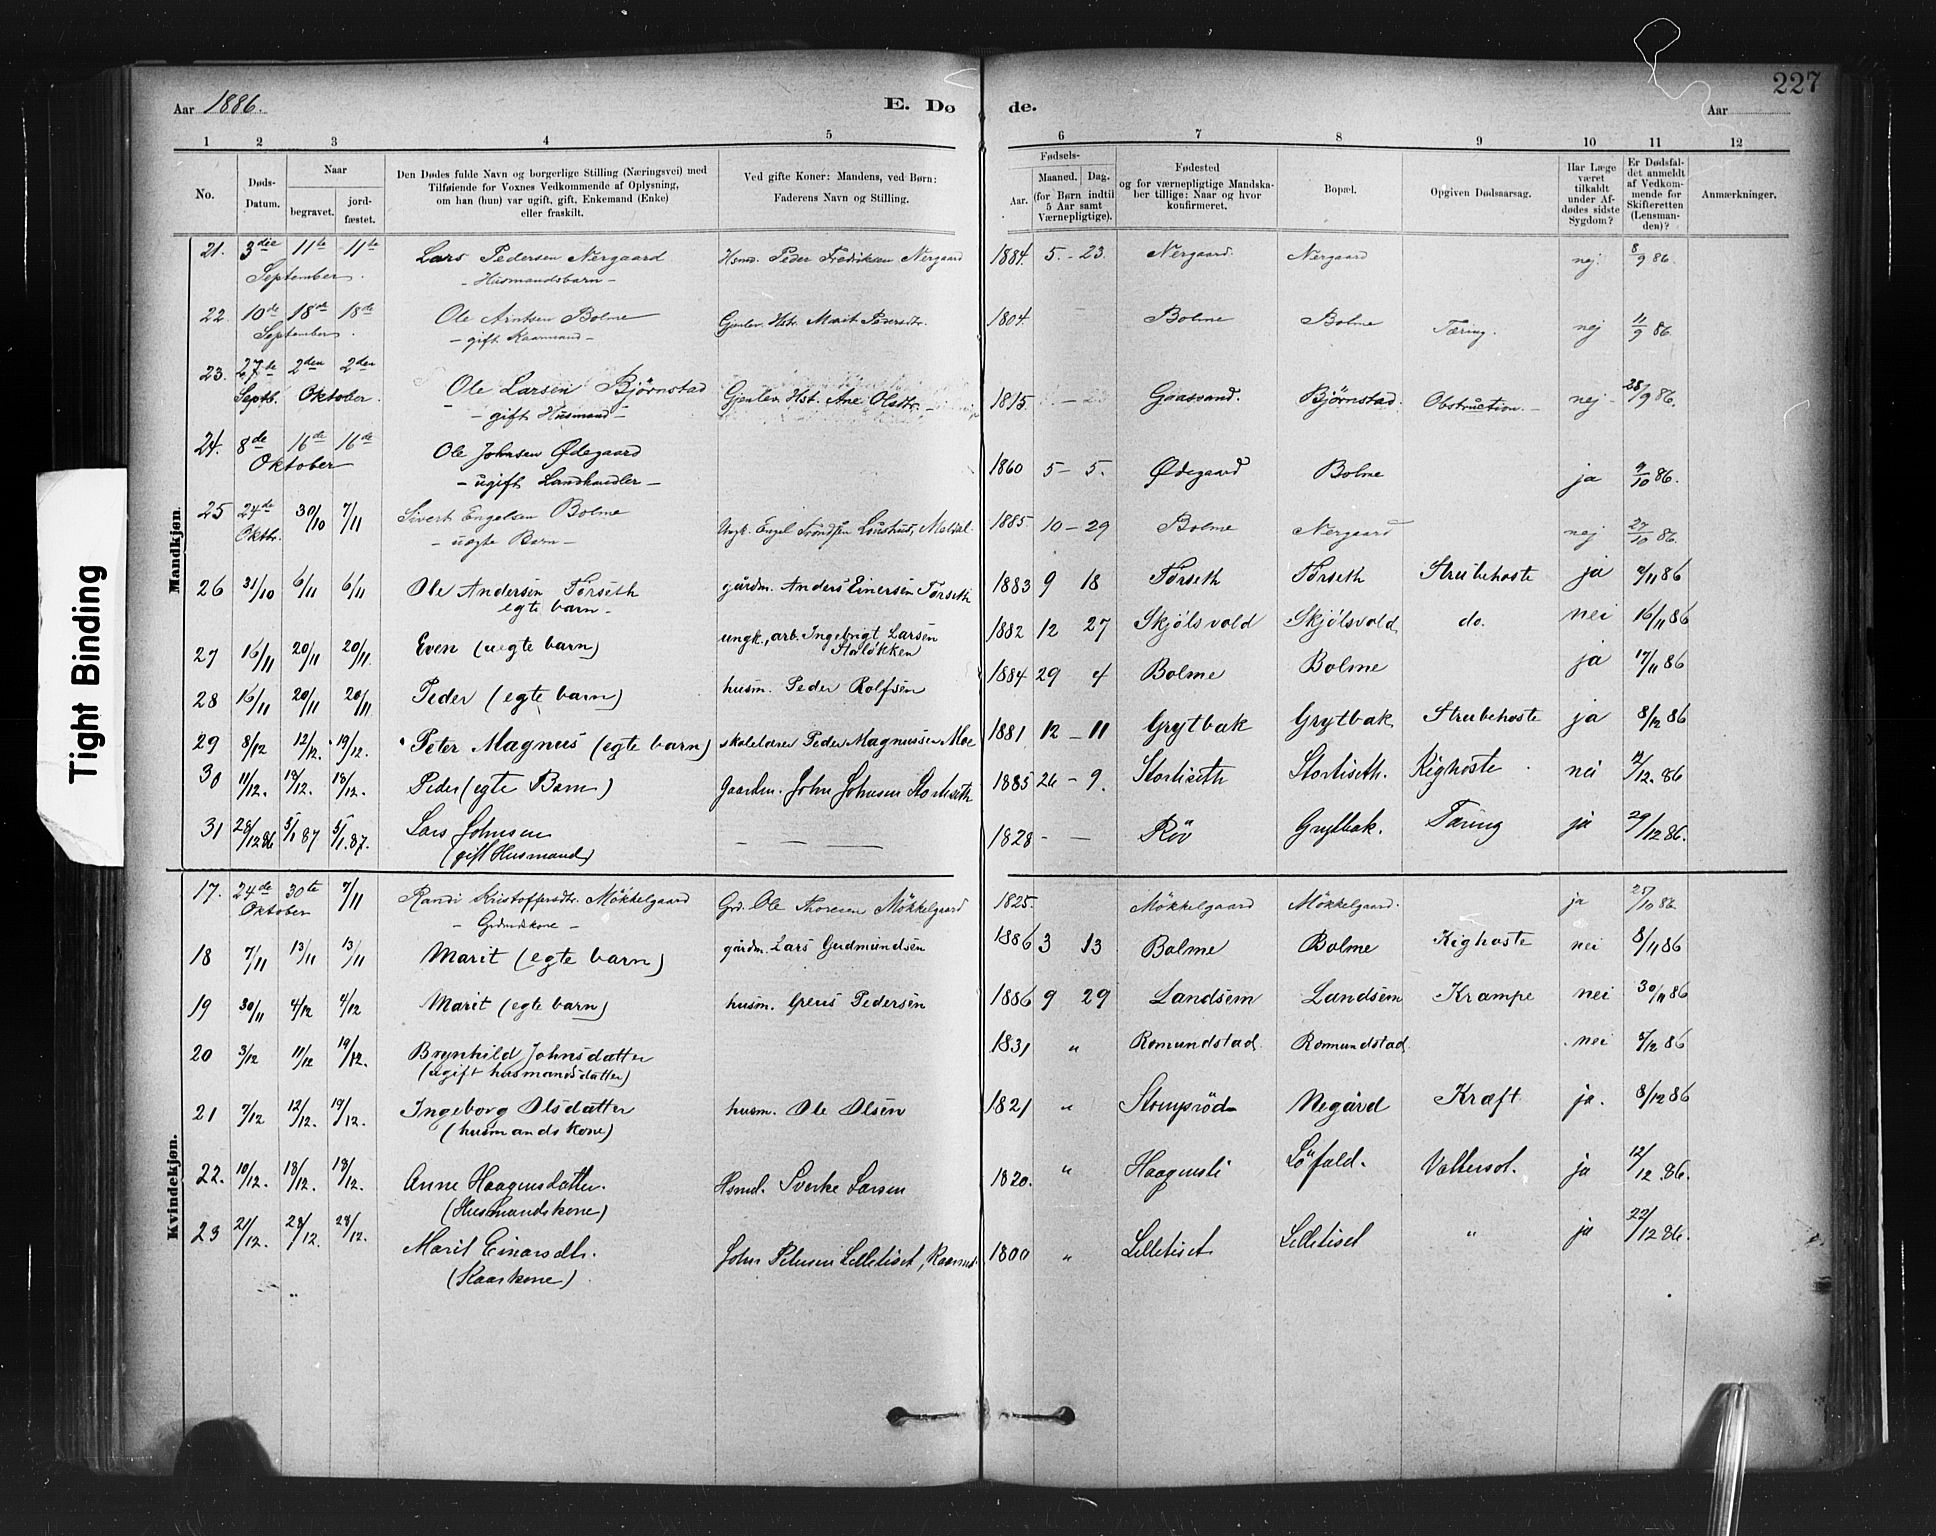 227
Aar 1886.
E. Dø de.
Aar
1 2 3 4 5 6 7 8 9 10 11 12
No.
Døds-Datum.
Naar
begravet.
jord-fæstet.
Den Dødes fulde Navn og borgerlige Stilling (Næringsvei) med
Tilføiende for Voxnes Vedkommende af Oplysning,
om han (hun) var ugift, gift, Enkemand (Enke)
eller fraskilt.
Ved gifte Koner: Mandens, ved Børn:
Faderens Navn og Stilling.
Fødsels-
Aar.
Maaned. Dag.
(for Børn indtil
5 Aar samt
Værnepligtige).
Fødested
og for værnepligtige Mandska-
ber tillige: Naar og hvor
konfirmeret.
Bopæl.
Opgiven Dødsaarsag.
Har Læge
været
tilkaldt
under Af-
dødes sidste
Sygdom?
Er Dødsfal-
det anmeldt
af Vedkom-
mende for
Skifteretten
(Lensman-
den)?
Anmærkninger.
Mandkjøn.
21. 3die 11te 11te Lars Pedersen Nergaard Hsmd. Peder Fredriksen Nergaard 1884. 5. - 23. Nergaard. Nergaard nej. 8/9 86
September. - Husmandsbarn -
22. 10de 18de 18de Ole Arntsen Bolme Gjenlev. Hstr. Marit 1804. Bolme Bolme Tæring. nej 11/9 86.
September. - gift Kaarmand -
23. 27de 2den 2den Ole Larsen Bjørnstad Gjenlev. Hst. Ane Olsdtr. 1815. Gaasvand. Bjørnstad. Obstruction. nej 28/9 86.
Septb. Oktober. - gift Husmand -
24. 8de 16de 16de Ole Johnsen Ødegaard 1860 5 - 5. Ødegaard Bolme ja 9/10 86.
Oktober - ugift Landhandler -
25 24de 30/10 7/11 Sivert Engelsen Bolme Ungk. Engel 1885. 10 - 29 Bolme Nergaard nej 27/10 86.
Oktbr. - uægte Barn -
26 31/10 6/11 6/11 Ole Andersen Törseth gårdm. Anders Einersen Törseth 1883 9 18 Törseth Törseth Strubehoste ja 2/11 86
egte barn -
27 16/11 20/11 20/11 Even (uegte barn) ungk., arb. Ingebrigt Larsen 1882 12 27 Skjölsvold Skjölsvold do. nei 16/11 86
Storlökken
28 16/11 20/11 20/11 Peder (egte barn) husm. Peder Rolfsen 1884 29 4 Bolme Bolme ja 17/11 86
29 8/12 12/12. 19/12. Peter Magnus (egte barn) skolelærer Peder Magnussen Moe 1881 12 - 11 Grytbak Grytbak Strubehoste ja 8/12 86
30 11/12. 18/12. 18/12. Peder (egte Barn) Gaardm. John Johnsen Stortiseth 1885 26 - 9. Stortiseth Stortiseth. Kighoste nei 12/12. 86
31 28/12 86 5/1 87 5/1. 87. Lars Johnsen - - - 1828 - - Röv Grytbak. Tæring ja 29/12 86.
(gift Husmand)
Kvindekjøn.
17. 24de 30te 7/11 Randi Kristoffersdtr. Mökkelgaard Grd. Ole Thoresen Mökkelgaard 1825. Mökkelgaard Mökkelgaard. ja 25/10 86
Oktober - Grdmdskone -
18 7/11 13/11 13/11 Marit (egte barn) gårdm. Lars Gudmundsen 1886 3 13 Bolme Bolme Kighoste nei 8/11 86
19 30/11 4/12 4/12 Marit (egte barn) husm. Pedersen 1886 9 29 Landsem Landsem Krampe nei 30/11 86
20 3/12 11/12 19/12. Brynhild Johnsdatter 1831 " Romundstad Romundstad nei 5/12 86
(ugift husmandsdatter)
21 7/12 12/12. 19/12. Ingeborg Olsdatter husm. Ole Olsen 1821 " Stompröd Negård Kræft ja. 8/12 86
(husmandskone)
22. 10/12. 18/12. 18/12. Anne Haagensdatter. Hsmd. Sverke Larsen 1820. " Haagensli Löfald. Vattersot. ja 12/12. 86.
(Husmandskone)
23 21/12. 28/12. 28/12. Marit Einarsdtr. John Petersen Lilletiset, Kaarmd. 1800 " Lilletiset Lilletiset " ja 22/12 86.
(Kaarkone)
Tight Binding